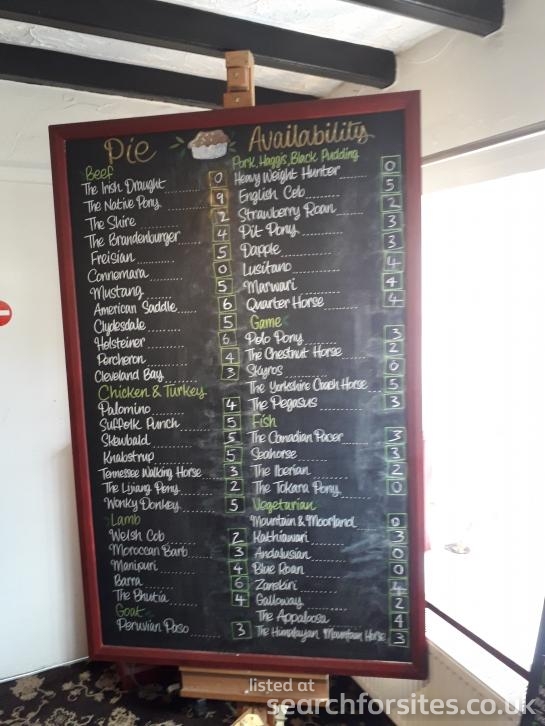 Pie Availability
Beef
The Irish Draught 0
The Native Pony 9
The Shire 2
The Brandenburger 4
Freisian 5
Connemara 0
Mustang 5
American Saddle 6
Clydesdale 5
Holsteiner 6
Percheron 4
Cleveland Bay 3
Chicken & Turkey
Palomino 4
Suffolk Punch 5
Skewbald 5
Knabstrup 5
Tennessee Walking Horse 3
The Lijiang Pony 2
Wonky Donkey 5
Lamb
Welsh Cob 2
Moroccan Barb 3
Manipuri 4
Barra 6
The Bhutia 4
Goat
Peruvian Paso 3
Pork, Haggis, Black Pudding
Heavy Weight Hunter 0
English Cob 5
Strawberry Roan 2
Pit Pony 3
Dapple 3
Lusitano 4
Marwari 4
Quarter Horse 4
Game
Polo Pony 3
The Chestnut Horse 2
Skyros 0
The Yorkshire Coach Horse 5
The Pegasus 3
Fish
The Canadian Pacer 3
Seahorse 3
The Iberian 2
The Tokara Pony 0
Vegetarian
Mountain & Moorland 0
Kathiawari 3
Andalusian 0
Blue Roan 0
Zaniskiri 4
Galloway 2
The Appaloosa 4
The Himalayan Mountain Horse 3
listed at
searchforsites.co.uk